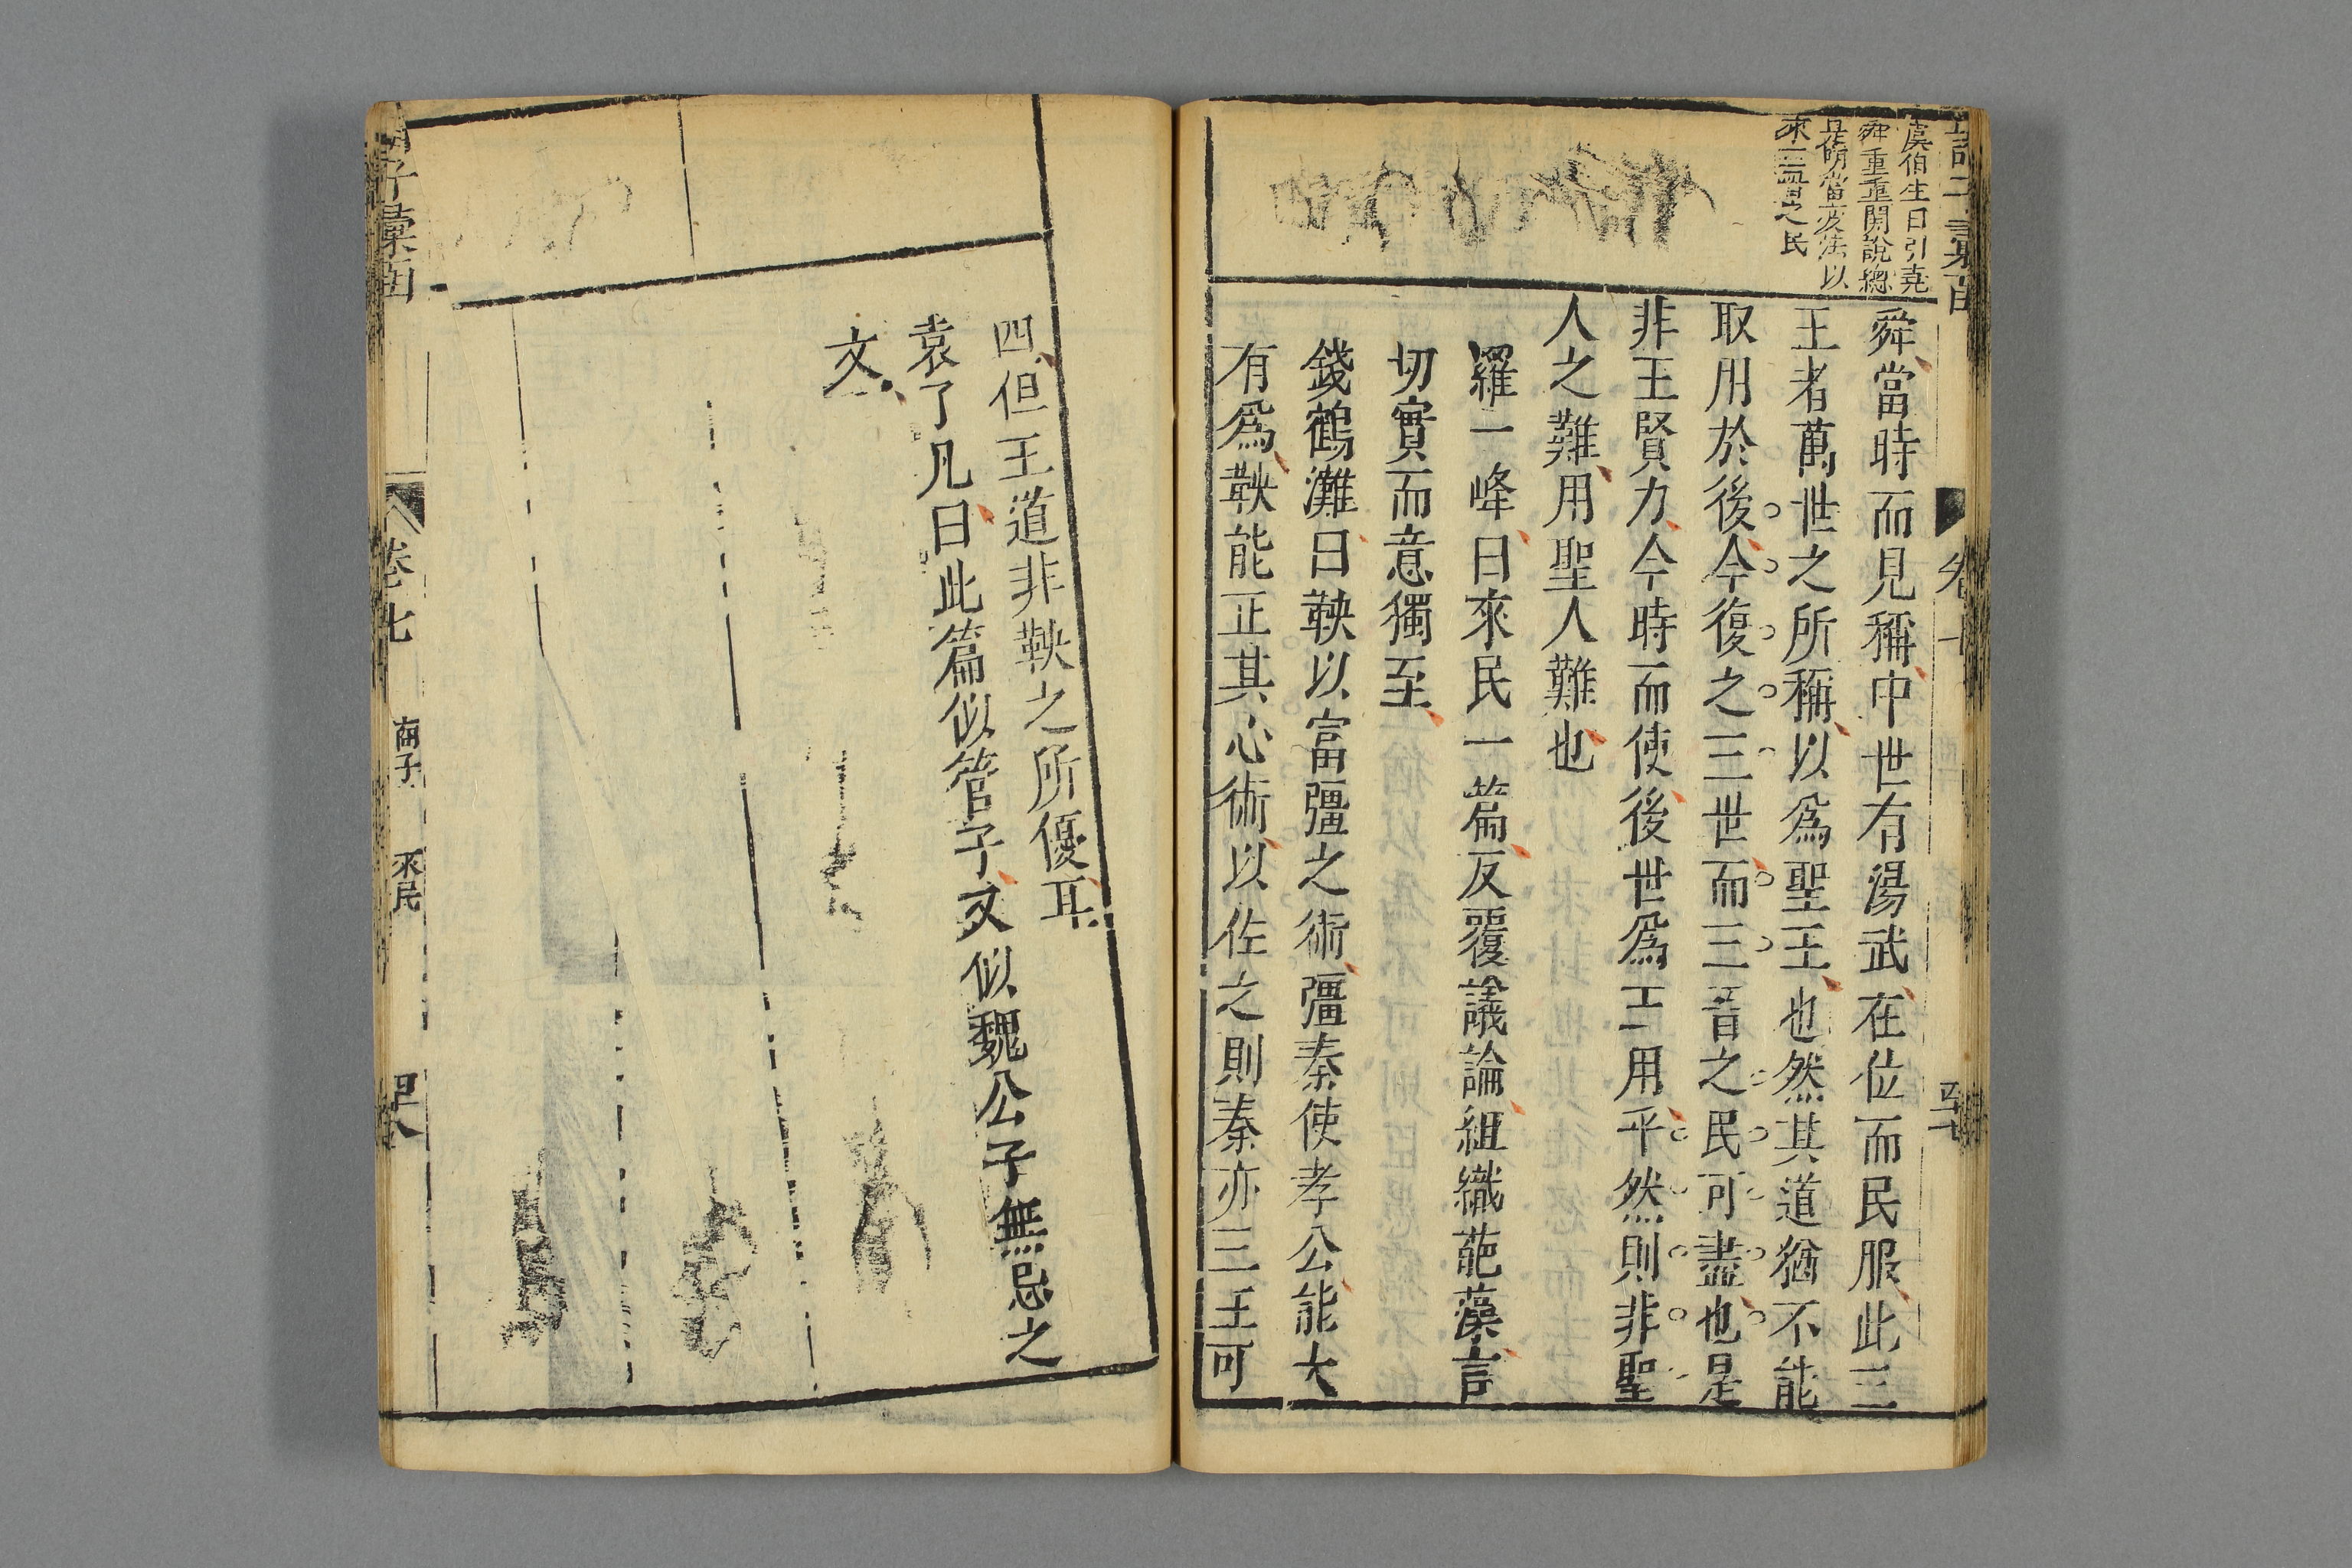 虞伯生曰引堯
舜重重開說總
是徠民之
舜當時而見稱中世有湯武在位而民服此三
王者萬世之所稱以爲聖王也然其道猶不能
取用於後今復之三世而三晉之民可盡也是
非王賢力今時而使後世爲王用乎然則非聖
人之難用聖人難也
羅一峰曰來民一篇反覆議論組織葩藻言
切實而意獨至
錢鶴灘曰鞅以富彊之術彊秦使孝公能大
有爲鞅能正其心術以佐之則秦亦三王可
四但王道非鞅之所優耳
袁了凡曰此篇似管子又似魏公子無忌之
文
子彙函
卷七
商子
來民
四八